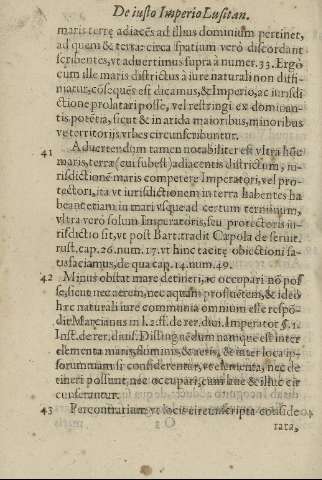 De iusto Imperio Lusitan.
maris terræ adiacẽs ad illius dominium pertinet,
ad quem & terra: circa spatium verò discordant
scribentes, vt aduertimus supra à numer. 33. Ergò
cum ille maris districtus à iure naturali non diffi-
niatur, cõsequẽs est dicamus, & Imperio, ac iurisdi
ctione prolatari posse, vel restringi ex dominan-
tis potẽtia, sicut & in arida maioribus, minoribus
ve territorijs vrbes circunscribuntur.
41 Aduertendum tamen notabiliter est vltra hũc
maris, terræ (cui subest) adiacentis districtum, iu-
risdictionẽ maris competere Imperatori, vel pro-
tectori, ita vt iurisdictionem in terra habentes ha
beant etiam in mari vsque ad certum terminum,
vltra verò solum Imperatoris, seu protectoris iu-
risdictio sit, vt post Bart. tradit Cæpola de seruit.
rust. cap. 26. num. 17. vt hinc tacitę obiectioni sa-
tisfaciamus, de qua cap. 14. num. 49.
42 Minus obstat mare detineri, ac occupari nõ pos
se, sicut nec aerem, nec aquam profluẽtem, & ideò
hæc naturali iure communia omnium esse respõ-
dit Marcianus in l. 2. ff. de rer. diui. Imperator §. 1.
Inst. de rer. diuis. Distinguẽdum namque est inter
elementa maris, & aeris, & inter loca ip-
sorum: nam si considerentur, vt elementa, nec de
tineri possunt, nec occupari, cum huc & illuc cir
cunferantur.
43 Per contrarium vt locis circunscripta conside
rata,